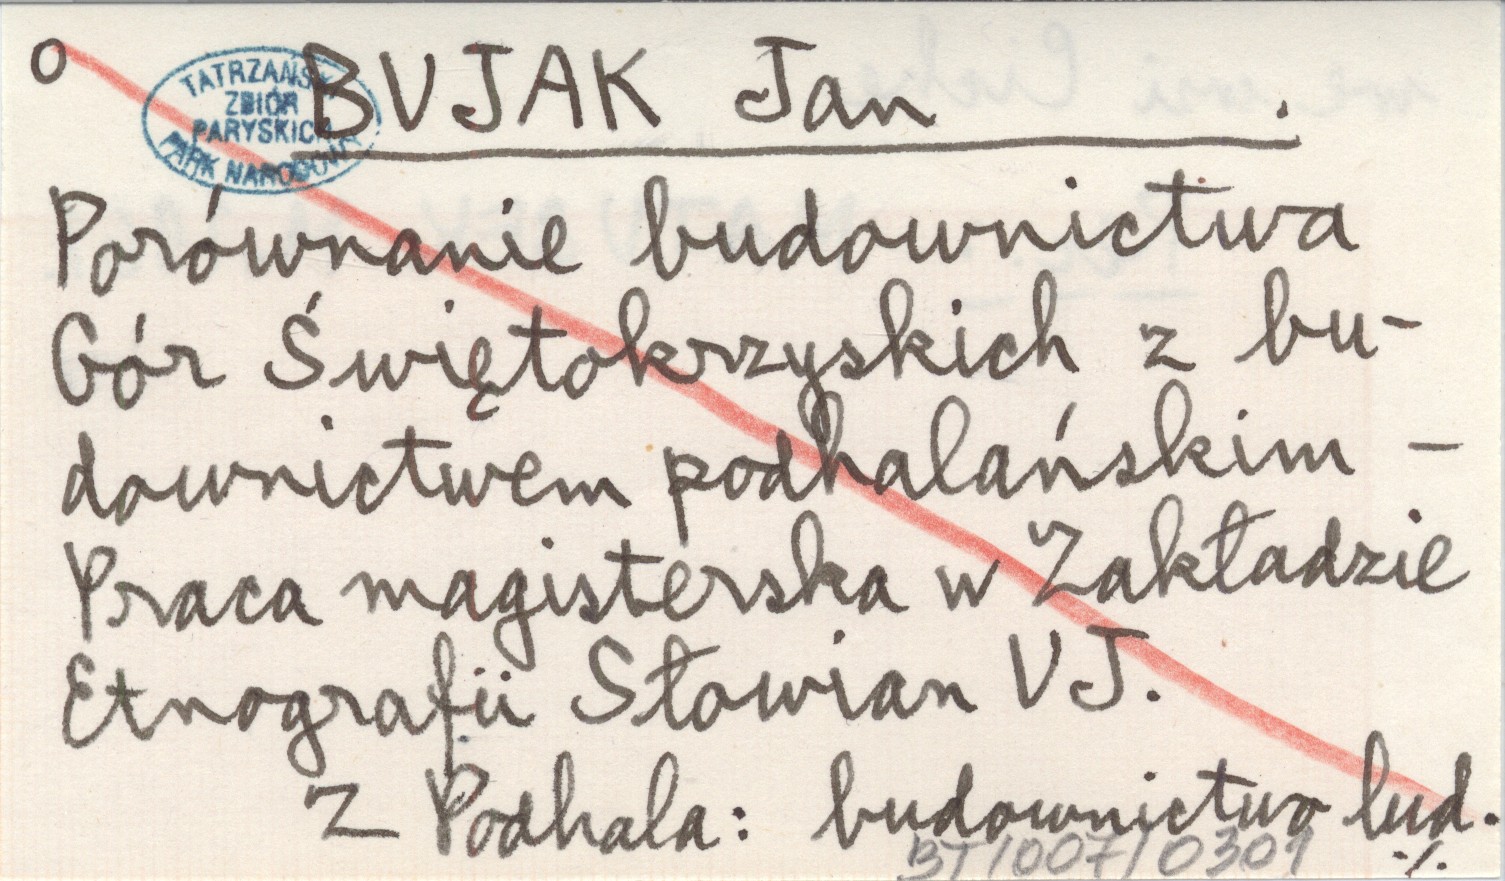 o BUJAK Jan .
TATRZAŃSKI
ZBIÓR
PARYSKICH
PARK NARODOWY
Porównanie budownictwa
Gór Świętokrzyskich z bu-
downictwem podhalańskim –
Praca magisterska w Zakładzie
Etnografii Słowian UJ.
Z Podhala: budownictwo lud.
BT/007/0301
./.